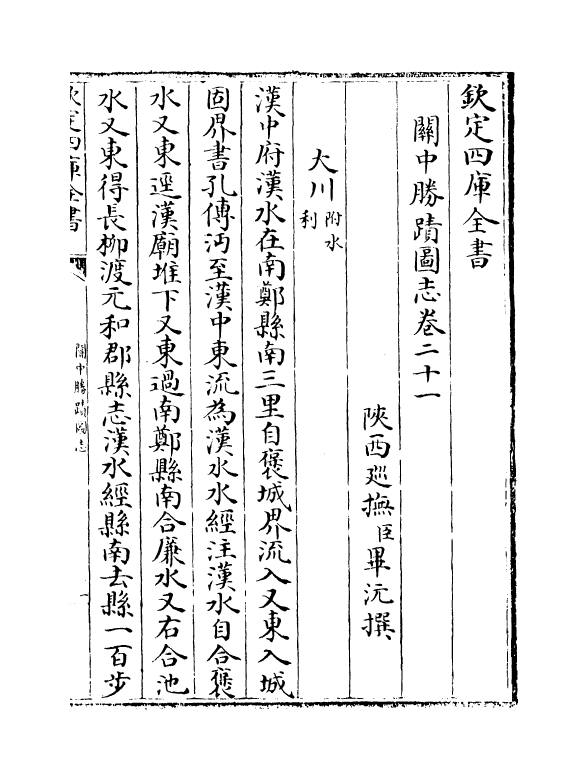 欽定四庫全書
關中勝蹟圖志卷二十一
陜西廵撫臣畢沅撰
大川附水利
漢中府漢水在南鄭縣南三里自褒城界流入又東入城
固界書孔傳沔至漢中東流為漢水水經注漢水自合褒
水又東逕漢廟堆下又東過南鄭縣南合㢘水又右合池
水又東得長栁渡元和郡縣志漢水經縣南去縣一百步
欽定四庫全書
關中勝蹟圖志
一